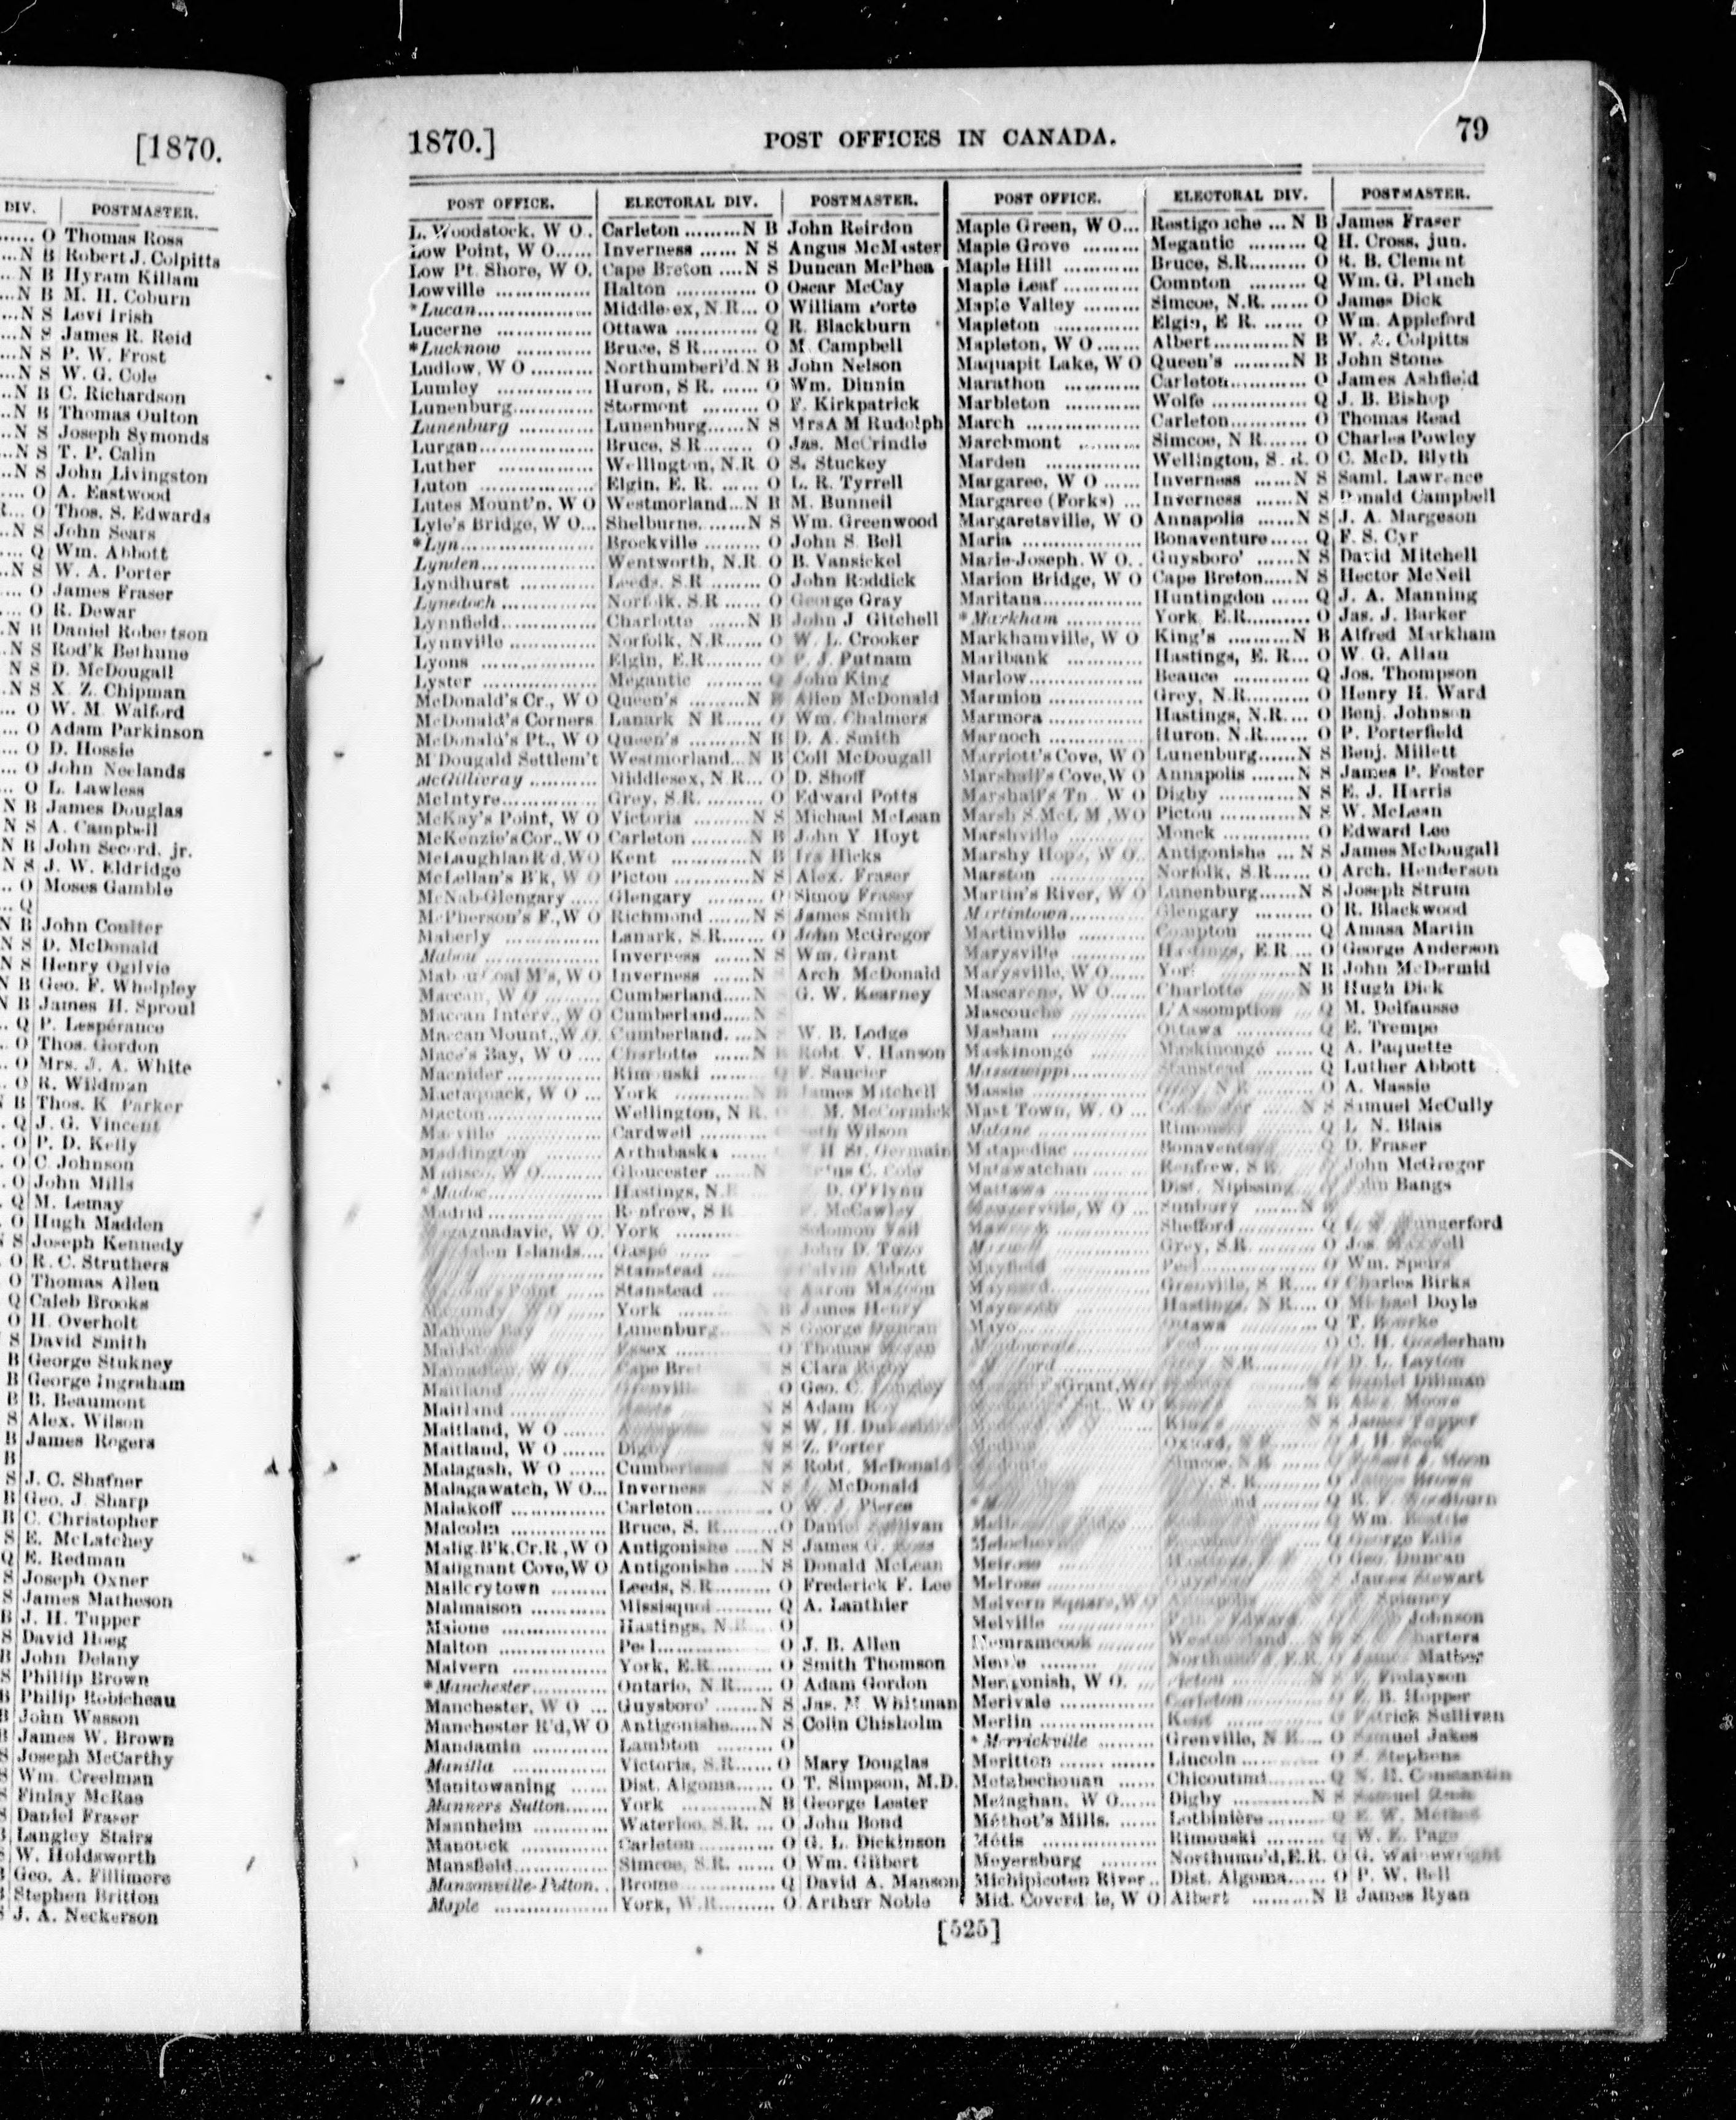 [1870.
DIV. POSTMASTER.
O Thomas Ross
N B Robert J. Colpitts
N B Hyram Killam
N B M. H. Coburn
N S Levi Irish
N S James R. Reid
N S P. W. Frost
N S W. G. Cole
N B C. Richardson
N B Thomas Oulton
N S Joseph Symonds
N S T. P. Calin
N S John Livingston
O A. Eastwood
O Thos. S. Edwards
N S John Sears
Q Wm. Abbott
N S W. A. Porter
O James Fraser
O R. Dewar
N B Daniel Robertson
N S Rod'k Bethune
N S D. McDougall
N S X. Z. Chipman
O W. M. Walford
O Adam Parkinson
O D. Hossie
O John Neelands
O L. Lawless
N B James Douglas
N S A. Campbell
N B John Secord, jr.
N S J. W. Eldridge
O Moses Gamble
Q
N B John Coulter
N S D. McDonald
N S Henry Ogilvie
N B Geo. F. Whelpley
N B James H. Sproul
Q P. Lespérance
O Thos. Gordon
O Mrs. J. A. White
O R. Wildman
B Thos. K. Parker
Q J. G. Vincent
O P. D. Kelly
O C. Johnson
O John Mills
Q M. Lemay
O Hugh Madden
S Joseph Kennedy
O R. C. Struthers
O Thomas Allen
Q Caleb Brooks
O H. Overholt
S David Smith
B George Stukney
B George Ingraham
B B. Beaumont
S Alex. Wilson
B James Rogers
B
S J. C. Shafner
B Geo. J. Sharp
B C. Christopher
S E. McLatchey
Q E. Redman
S Joseph Oxner
S James Matheson
B J. H. Tupper
S David Hoeg
B John Delany
S Phillip Brown
B Philip Robicheau
B John Wasson
B James W. Brown
S Joseph McCarthy
S Wm. Creelman
S Finlay McRae
S Daniel Fraser
B Langley Stairs
S W. Holdsworth
B Geo. A. Fillimore
B Stephen Britton
S J. A. Neckerson
1870.] POST OFFICES IN CANADA. 79
POST OFFICE. ELECTORAL DIV. POSTMASTER.
L. Woodstock, W O. Carleton.........N B John Reirdon
Low Point, W O...... Inverness ...... N S Angus McMaster
Low Pt. Shore, W O. Cape Breton ....N S Duncan McPhea
Lowville ............... Halton ............ O Oscar McCay
*Lucan.................. Middlesex, N.R... O William Porte
Lucerne ............... Ottawa ............ Q R. Blackburn
*Lucknow ............ Bruce, S R......... O M. Campbell
Ludlow, W O ......... Northumberl'd N B John Nelson
Lumley ............... Huron, S R. ...... O Wm. Dinnin
Lunenburg............. Stormont ......... O F. Kirkpatrick
Lunenburg ............ Lunenburg......N S Mrs A M Rudolph
Lurgan................. Bruce, S R......... O Jas. McCrindle
Luther ............... Wellington, N.R O S. Stuckey
Luton .................. Elgin, E. R. ...... O L. R. Tyrrell
Lutes Mount'n, W O Westmorland...N B M. Bunnell
Lyle's Bridge, W O... Shelburne.......N S Wm. Greenwood
*Lyn..................... Brockville ......... O John S. Bell
Lynden................. Wentworth, N.R O B. Vansickel
Lyndhurst ............ Leeds, S.R ......... O John Roddick
Lynedoch .............. Norfolk, S.R ...... O George Gray
Lynnfield.............. Charlotte ......N B John J Gitchell
Lynnville ............. Norfolk, N.R...... O W. L. Crooker
Lyons .................. Elgin, E.R......... O P. J. Putnam
Lyster .................. Megantic ......... Q John King
McDonald's Cr., W O Queen's .........N B Allen McDonald
McDonald's Corners Lanark N R...... O Wm. Chalmers
McDonald's Pt., W O Queen's .........N B D. A. Smith
M'Dougald Settlem't Westmorland...N B Coll McDougall
McGillivray .......... Middlesex, N R... O D. Shoff
McIntyre............... Grey, S.R. ......... O Edward Potts
McKay's Point, W O Victoria .........N S Michael McLean
McKenzie's Cor., W O Carleton .........N B John Y Hoyt
McLaughlan R'd, W O Kent ............N B Ira Hicks
McLellan's B'k, W O Pictou ............N S Alex. Fraser
McNab Glengary ..... Glengary ......... O Simon Fraser
McPherson's F., W O Richmond .......N S James Smith
Maberly ............... Lanark, S.R....... O John McGregor
Mabou ................. Inverness ......N S Wm. Grant
Mabou Coal M's, W O Inverness ......N Arch McDonald
Maccan, W O ......... Cumberland.....N G. W. Kearney
Maccan Interv., W O Cumberland.....N
Maccan Mount., W O. Cumberland.....N W. B. Lodge
Mace's Bay, W O .... Charlotte ......N B Robt. V. Hanson
Macnider............... Rimouski ....... Q F. Saucier
Mactaquack, W O ... York ............N B James Mitchell
Macton................. Wellington, N R. M. McCormick
Macville ............... Cardwell .......... Seth Wilson
Maddington .......... Arthabaska ...... H St. Germain
Madisco, W O......... Gloucester ....N C. Cole
*Madoc................. Hastings, N.R D. O'Flynn
Madrid ................. Renfrew, S R McCawley
Magaguadavic, W O. York .......... Solomon Vail
Islands.... Gaspé ...... John D. Tuzo
Stanstead .... Calvin Abbott
Point ...... Stanstead .... Aaron Magoon
Magundy W O ....... York ....... B James Henry
Mahone Bay Lunenburg.. N S George Duncan
Maidstone Essex ....... O Thomas Moran
Mainadieu, W O Cape Bret S Clara Rigby
Maitland Grenville O Geo. C. Longley
Maitland ............. N S Adam Roy
Maitland, W O ....... N S W. H.
Maitland, W O ....... Digby N S Z. Porter
Malagash, W O ...... Cumberland N S Robt. McDonald
Malagawatch, W O... Inverness N S McDonald
Malakoff ............... Carleton............ O W. J. Pierce
Malcolm ............... Bruce, S. R.........O Daniel Sullivan
Malig. B'k. Cr. R., W O Antigonishe ....N S James G. Ross
Malignant Cove, W O Antigonishe ....N S Donald McLean
Mallorytown ......... Leeds, S.R......... O Frederick F. Lee
Malmaison ............ Missisquoi......... Q A. Lanthier
Malone ................ Hastings, N.R... O
Malton ................ Peel.................. O J. B. Allen
Malvern ............... York, E.R.......... O Smith Thomson
*Manchester............ Ontario, N.R...... O Adam Gordon
Manchester, W O ... Guysboro' .......N S Jas. M. Whitman
Manchester R'd, W O Antigonishe.....N S Colin Chisholm
Mandamin ............ Lambton ......... O
Manilla ................ Victoria, S.R...... O Mary Douglas
Manitowaning ...... Dist. Algoma...... O T. Simpson, M.D.
Manners Sutton....... York ............N B George Lester
Mannheim ............ Waterloo, S.R. ... O John Bond
Manotick .............. Carleton............ O G. L. Dickinson
Mansfield............... Simcoe, S.R. ...... O Wm. Gilbert
Mansonville Potton. . Brome............... Q David A. Manson
Maple .................. York, W.R......... O Arthur Noble
POST OFFICE. ELECTORAL DIV. POSTMASTER.
Maple Green, W O... Restigouche ... N B James Fraser
Maple Grove ......... Megantic ......... Q H. Cross, jun.
Maple Hill ............ Bruce, S.R......... O R. B. Clement
Maple Leaf ............ Compton ......... Q Wm. G. Planch
Maple Valley ......... Simcoe, N.R. ...... O James Dick
Mapleton ............. Elgin, E R. ...... O Wm. Appleford
Mapleton, W O ....... Albert............N B W. A. Colpitts
Maquapit Lake, W O Queen's .........N B John Stone
Marathon ............ Carleton............ O James Ashfield
Marbleton ............ Wolfe ............... Q J. B. Bishop
March .................. Carleton............ O Thomas Read
Marchmont .......... Simcoe, N R....... O Charles Powley
Marden ............... Wellington, S. R. O C. McD. Blyth
Margaree, W O ...... Inverness ......N S Saml. Lawrence
Margaree (Forks) ... Inverness ......N S Donald Campbell
Margaretsville, W O Annapolis ......N S J. A. Margeson
Maria ................... Bonaventure...... Q F. S. Cyr
Marie Joseph. W O. . Guysboro' ......N S David Mitchell
Marion Bridge, W O Cape Breton.....N S Hector McNeil
Maritana............... Huntingdon ...... Q J. A. Manning
*Markham ............ York E.R.......... O Jas. J. Barker
Markhamville, W O King's ..........N B Alfred Markham
Marlbank ............ Hastings, E. R... O W. G. Allan
Marlow................. Beauce ............. Q Jos. Thompson
Marmion ............... Grey, N.R.......... O Henry H. Ward
Marmora............... Hastings, N.R.... O Benj. Johnson
Marnoch ............... Huron, N.R....... O P. Porterfield
Marriott's Cove, W O Lunenburg......N S Benj. Millett
Marshall's Cove, W O Annapolis .......N S James P. Foster
Marshall's Tn., W O Digby ............N S E. J. Harris
Marsh S. McL M, W O Pictou ............N S W. McLean
Marshville ............ Monck ............... O Edward Lee
Marshy Hope, W O.. Antigonishe ... N S James McDougall
Marston ............... Norfolk, S.R...... O Arch. Henderson
Martin's River, W O Lunenburg......N S Joseph Strum
Martintown............ Glengary ......... O R. Blackwood
Martinville ............ Compton .......... Q Amasa Martin
Marysville ............ Hastings, E.R ... O George Anderson
Marysville, W O...... York ............N B John McDermid
Mascarene, W O...... Charlotte ......N B Hugh Dick
Mascouche ............ L'Assomption ... Q M. Delfausse
Masham ............... Ottawa ............ Q E. Trempe
Maskinongé .......... Maskinongé ...... Q A. Paquette
Massawippi............ Stanstead ......... Q Luther Abbott
Massie .................. Grey, N R ......... O A. Massie
Mast Town, W. O ... Colchester ......N S Samuel McCully
Matane ................. Rimouski Q L. N. Blais
Matapediac ........... Bonaventure Q D. Fraser
Matawatchan ........ Renfrew, S R. John McGregor
Mattawa ............... Dist. Nipissing John Bangs
Maugerville, W O ... Sunbury .......N B
Shefford ......... Q Hungerford
Maxwell ............... Grey, S.R. ......... O Jos. Maxwell
Mayfield ............... Peel.................. O Wm. Speirs
Maynard............... Grenville, S R.... O Charles Birks
Maynooth ............. Hastings, N R.... O Michael Doyle
Mayo.................... Ottawa ............ Q T. Bourke
Meadowvale........... Peel.................. O C. H. Gooderham
Meaford ............... Grey N.R.......... O D. L. Layton
Grant, W O N S Daniel Dillman
W O N B Alex. Moore
King's N S James Tupper
Medina Oxford, N R....... O
Medonte Simcoe, N.R
S. R........ O James Brown
Q
Ridge Q Wm. Beattie
Melocheville Q George Ellis
Melrose ................ Hastings, O Geo. Duncan
Melrose ................ Guysboro' James Stewart
Melvern Square, W O Annapolis Spinney
Melville ................ Edward Johnson
Memramcook ........ Westmorland N B Charters
Northumb'd, E.R. O James Mather
Merigonish, W O. ... Pictou N S Finlayson
Merivale ............... Carleton O B. Hopper
Merlin .................. Kent O Patrick Sullivan
*Merrickville ......... Grenville, N R... O Samuel Jakes
Meritton ............... Lincoln............. O Stephens
Metabechouan ...... Chicoutimi......... Q N. H. Constantin
Metaghan, W O...... Digby ............N S Samuel
Méthot's Mills. ...... Lotbinière.......... Q E. W. Méthot
Métis ................... Rimouski ......... Q W. E. Page
Meyersburg ......... Northumb'd, E.R. O G. Wainewright
Michipicoten River.. Dist. Algoma...... O P. W. Bell
Mid. Coverdale, W O Albert .........N B James Ryan
[525]